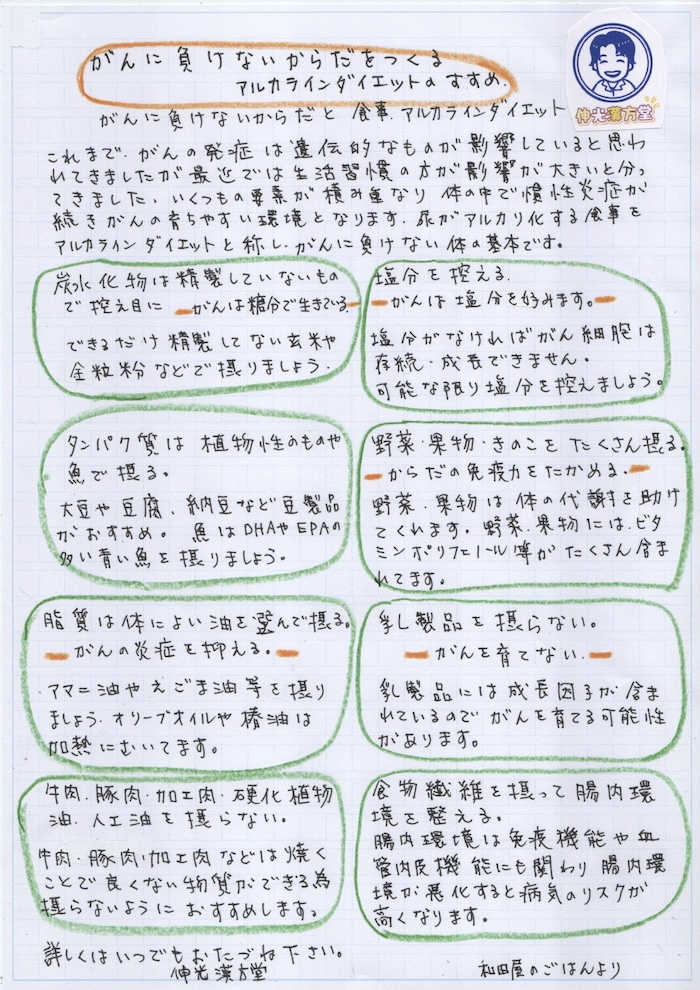 がんに負けないからだをつくる
アルカラインダイエットのすすめ.
伸光漢方堂
がんに負けないからだと 食事.アルカラインダイエット
これまで、がんの発症は遺伝的なものが影響していると思わ
れてきましたが最近では生活習慣の方が影響が大きいと分っ
てきました.いくつもの要素が積み重なり 体の中で慢性炎症が
続きがんの育ちやすい環境となります.尿がアルカリ化する食事を
アルカラインダイエットと称し、がんに負けない体の基本です。
炭水化物は精製していないもの
で控え目に ーがんは糖分で生きているー
できるだけ精製してない玄米や
全粒粉などで摂りましょう.
塩分を控える.
ーがんは塩分を好みます。ー
塩分がなければがん細胞は
存続・成長できません。
可能な限り塩分を控えましょう。
タンパク質は 植物性のものや
魚で摂る。
大豆や豆腐、納豆など豆製品
がおすすめ。魚はDHAやEPAの
多い青い魚を摂りましょう。
野菜・果物・きのこをたくさん摂る.
ーからだの免疫力をたかめる.ー
野菜・果物は体の代謝を助け
てくれます。野菜・果物には、ビタ
ミンポリフェノール等がたくさん含ま
れてます。
脂質は体によい油を選んで摂る。
ーがんの炎症を抑える。ー
アマニ油やえごま油等を摂り
ましょう.オリーブオイルや椿油は
加熱にむいてます。
乳製品を摂らない。
ーがんを育てない.ー
乳製品には成長因子が含ま
れているのでがんを育てる可能性
があります。
牛肉.豚肉・加工肉・硬化植物
油.人工油を摂らない。
牛肉・豚肉・加工肉などは焼く
ことで良くない物質ができる為
摂らないようにおすすめします。
食物繊維を摂って腸内環
境を整える。
腸内環境は免疫機能や血
管内皮機能にも関わり腸内環
境が悪化すると病気のリスクが
高くなります。
詳しくはいつでもおたづね下さい。
伸光漢方堂
和田屋のごはんより